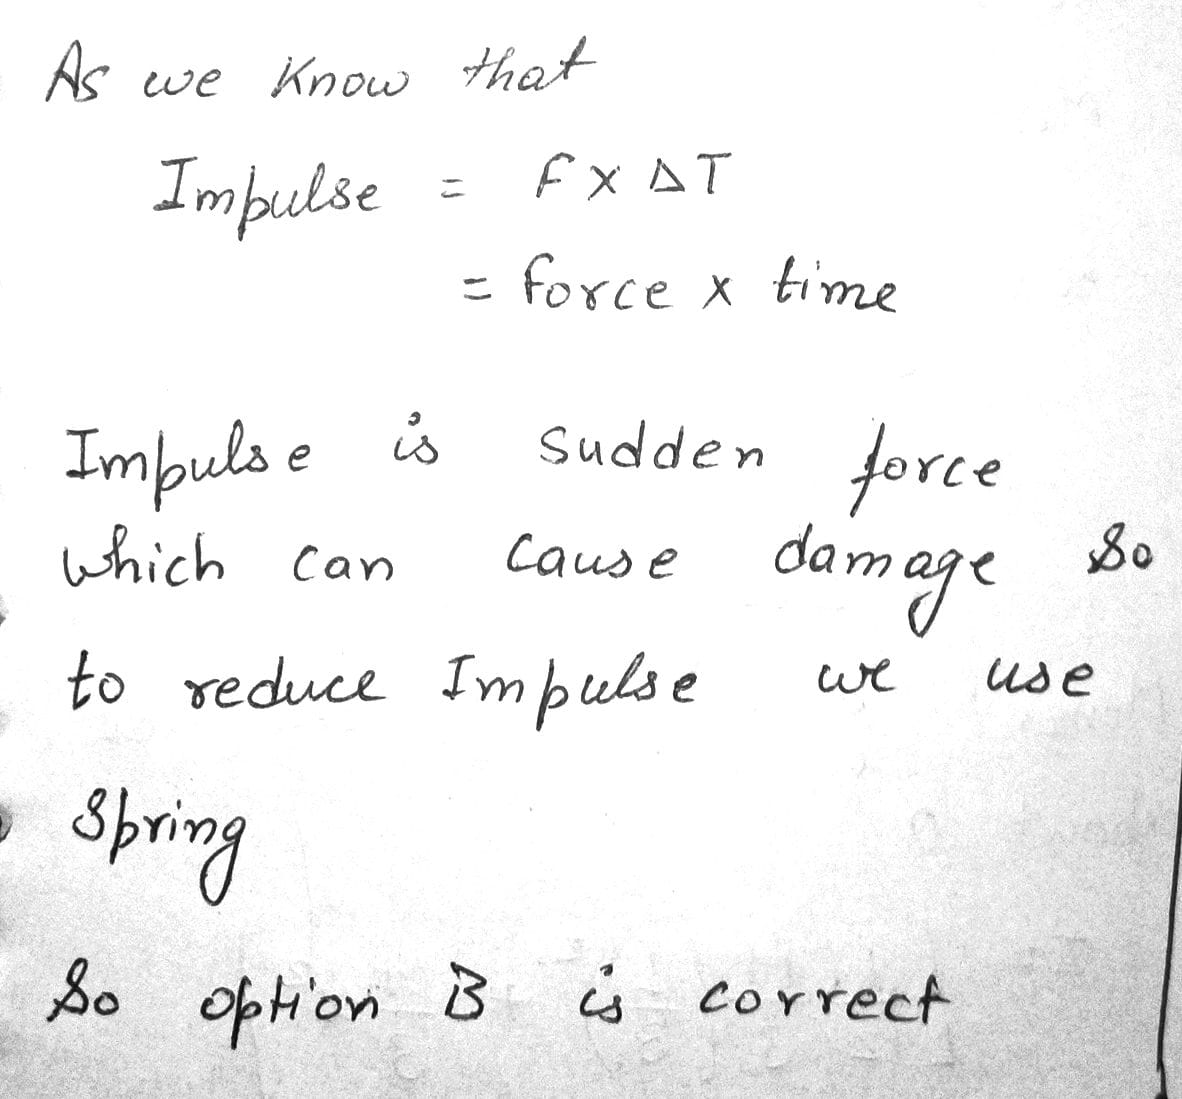 As we know that
Impulse = F X ΔT
= force x time
Impulse is sudden force
which can cause damage So
to reduce Impulse we use
Spring
So option B is correct